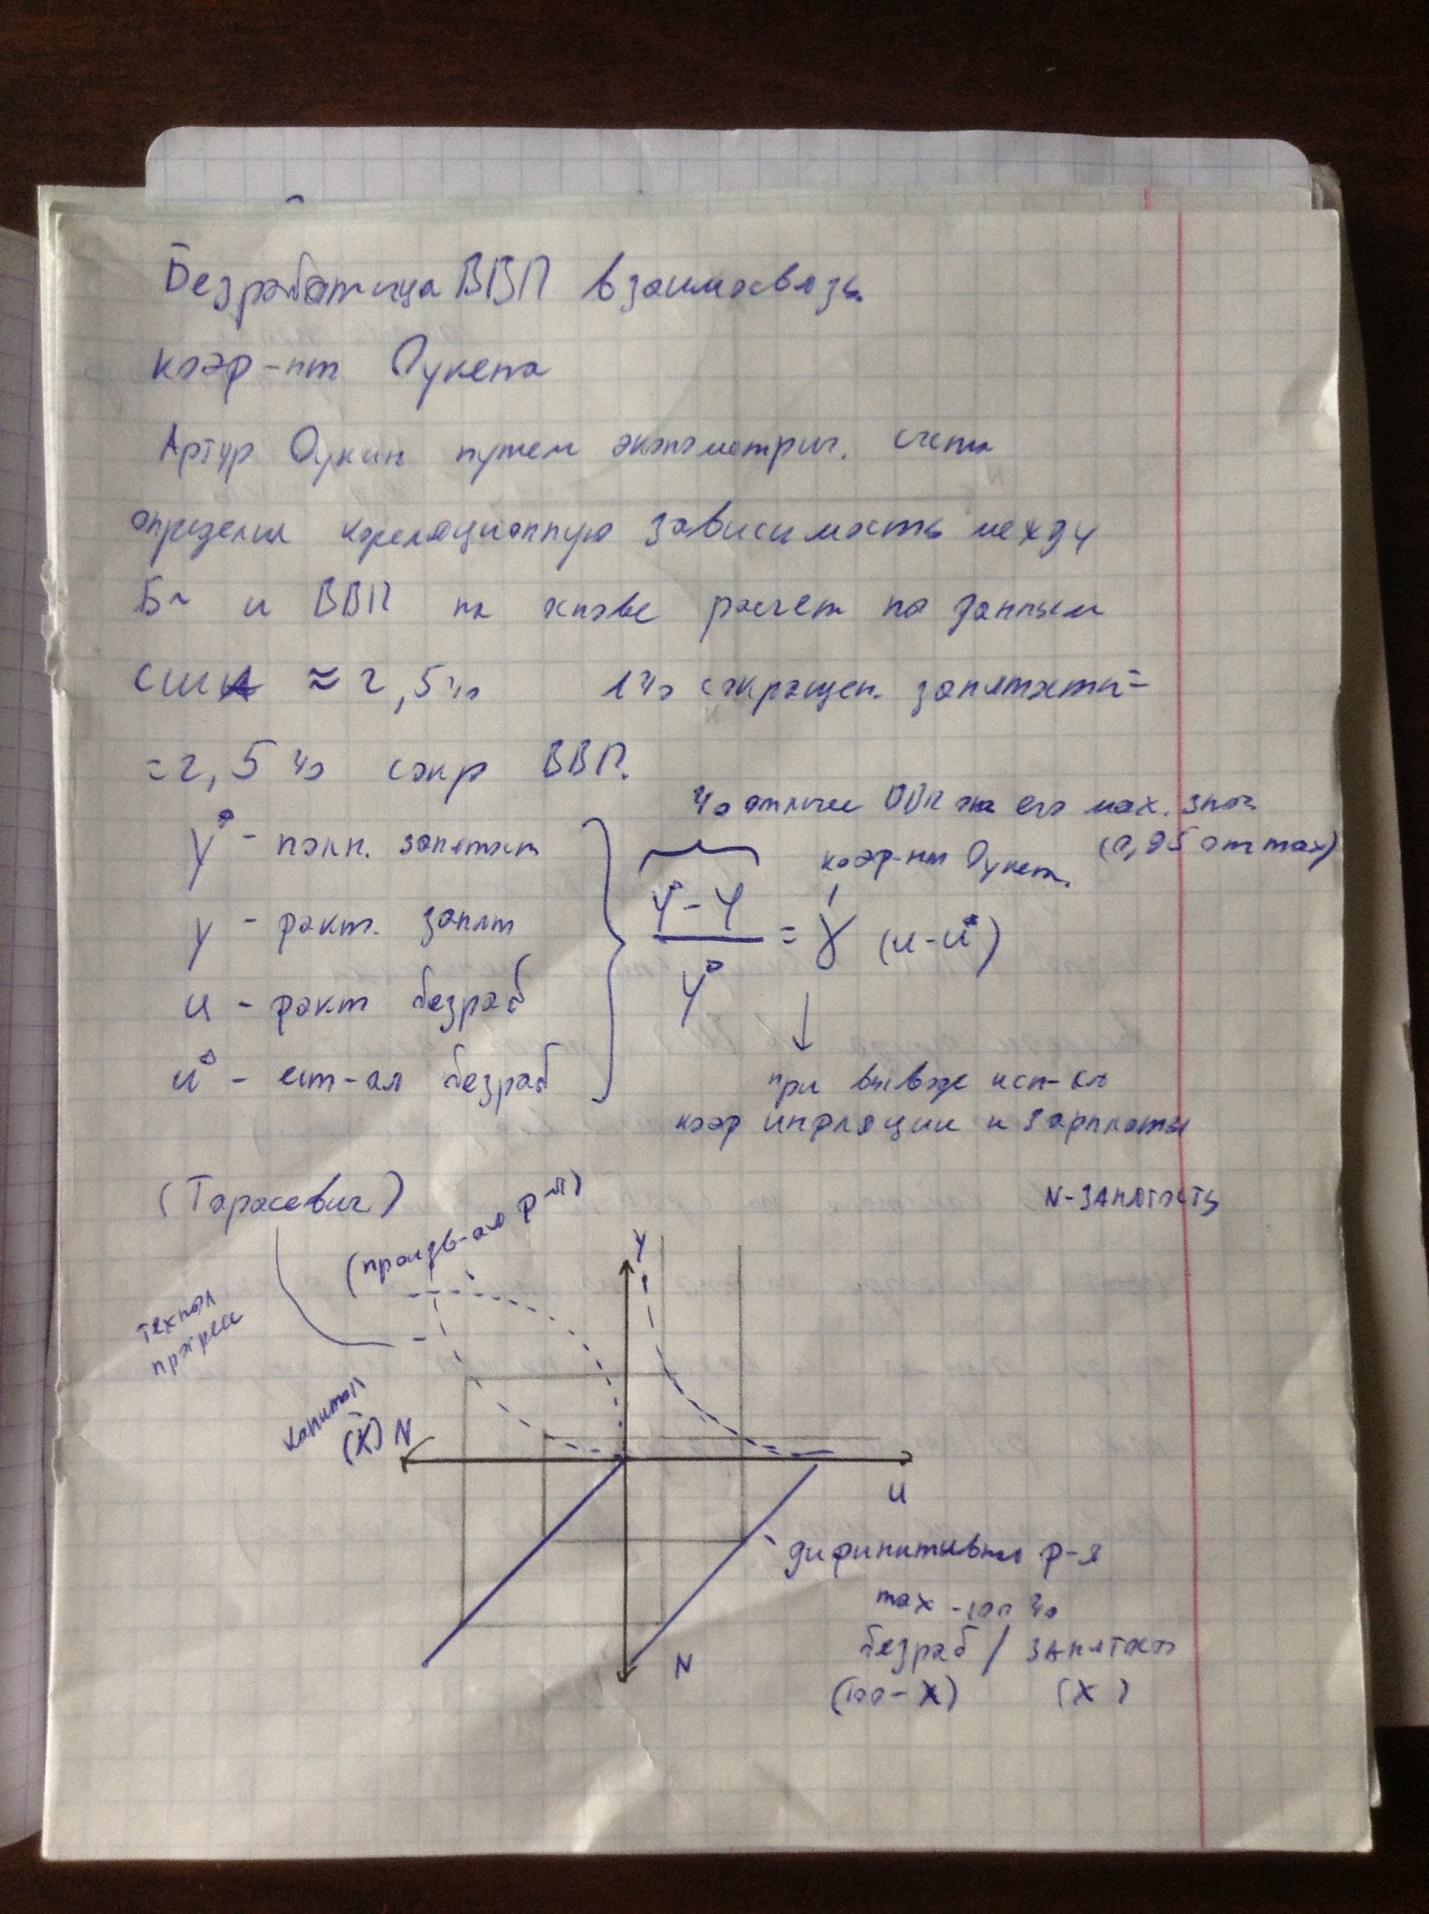 Безработица ВВП взаимосвязь
коэф-нт Оукена
Артур Оукин путем эконометрич. счета
определил кореляционную зависимость между
Бц и ВВП на основе расчет по данным
США ≈ 2,5%    1% сокращен. занятости =
= 2,5% сокр ВВП.
% отличие ВВП от его мах. знач
(0,95 от max)
коэф-нт Оукен.
y* - полн. занятост
y - факт. занят
u - факт безраб
u* - ест-ая безраб
Y* - Y / Y* = γ (u - u*)
при выводе исп-сь
коэф инфляции и зарплаты
(Тарасевич)
(произв-ая ф-я)
N - занятость
технол
прогресс
капитал
(K) N
Y
u
N
дифинитивная ф-я
max - 100%
безраб / занятост
(100 - X) (X)